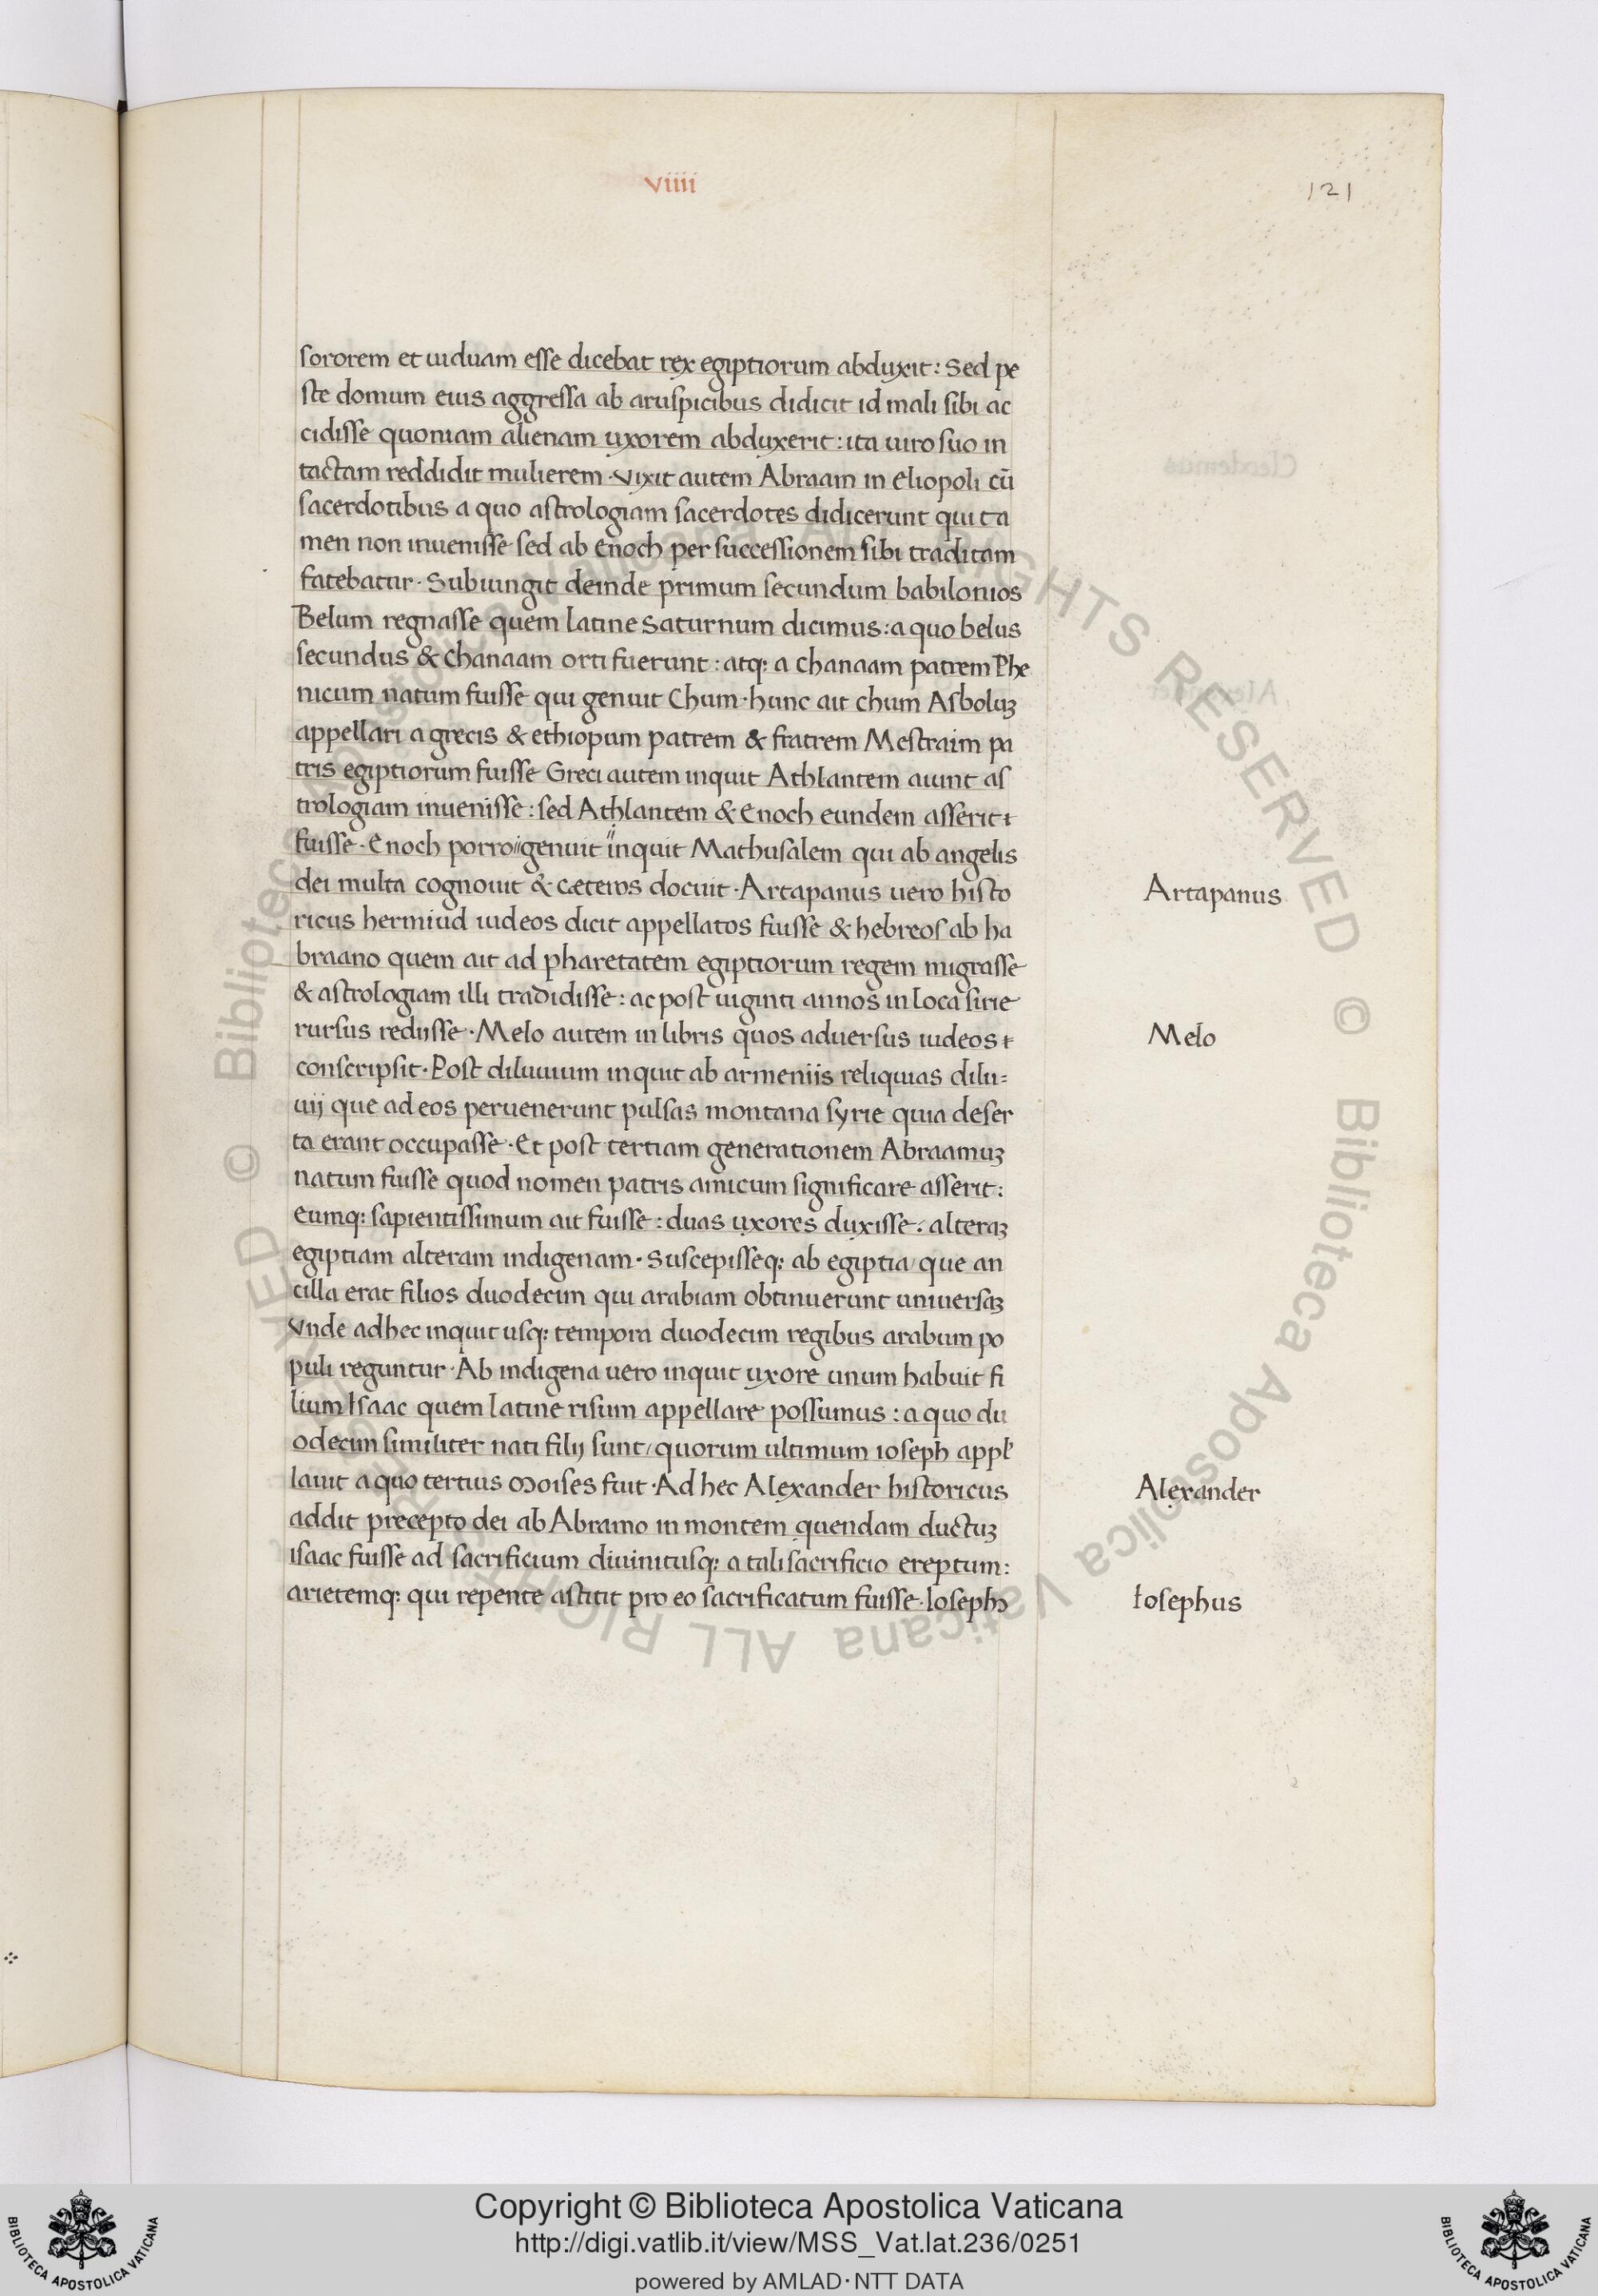 viiii
121
sororem et uiduam esse dicebat rex egiptiorum abduxit: Sed pe
ste domum eius aggressa ab aruspicibus didicit id mali sibi ac
cidisse quoniam alienam uxorem abduxerit: ita uiro suo in
tactam reddidit mulierem. Vixit autem Abraam in eliopoli cū
sacerdotibus a quo astrologiam sacerdotes didicerunt qui ta
men non inuenisse sed ab enoch per successionem sibi traditam
fatebatur. Subiungit deinde primum secundum babilonios
Belum regnasse quem latine Saturnum dicimus: a quo belus
secundus & chanaam orti fuerunt: atq; a chanaam patrem Phe
nicum natum fuisse qui genuit Chum. hunc ait chum Asboluꝫ
appellari a grecis & ethiopum patrem & fratrem Mestraim pa
tris egiptiorum fuisse Greci autem inquit Athlantem aiunt as
trologiam inuenisse: sed Athlantem & Enoch eundem asserit
fuisse. Enoch porro genuit inquit Mathusalem qui ab angelis
dei multa cognouit & cæteros docuit. Artapanus uero histo
Artapanus
ricus hermiud iudeos dicit appellatos fuisse & hebreos ab ha
braano quem ait ad pharetatem egiptiorum regem migrasse
& astrologiam illi tradidisse: ac post uiginti annos in loca sirie
rursus redijsse. Melo autem in libris quos aduersus iudeos
Melo
conscripsit. Post diluuium inquit ab armeniis reliquias dilu=
uij que ad eos peruenerunt pulsas montana syrie quia deser
ta erant occupasse. Et post tertiam generationem Abraamuꝫ
natum fuisse quod nomen patris amicum significare asserit:
eumq; sapientissimum ait fuisse: duas uxores duxisse: alteraꝫ
egiptiam alteram indigenam. Suscepisseq; ab egiptia/ que an
cilla erat filios duodecim qui arabiam obtinuerunt uniuersaꝫ
Vnde adhec inquit usq; tempora duodecim regibus arabum po
puli reguntur. Ab indigena uero inquit uxore unum habuit fi
lium Isaac quem latine risum appellare possumus: a quo du
odecim similiter nati filij sunt/ quorum ultimum ioseph appl̛
lauit a quo tertius Moises fuit. Ad hec Alexander historicus
Alexander
addit precepto dei ab Abramo in montem quendam ductuꝫ
isaac fuisse ad sacrificium diuinitusq; a tali sacrificio ereptum:
arietemq; qui repente astitit pro eo sacrificatum fuisse. Iosephꝰ
Iosephus
Copyright © Biblioteca Apostolica Vaticana
http://digi.vatlib.it/view/MSS_Vat.lat.236/0251
powered by AMLAD·NTT DATA
BIBLIOTECA APOSTOLICA VATICANA
BIBLIOTECA APOSTOLICA VATICANA
© Biblioteca Apostolica Vaticana ALL RIGHTS RESERVED © Biblioteca Apostolica Vaticana ALL RIGHTS RESERVED